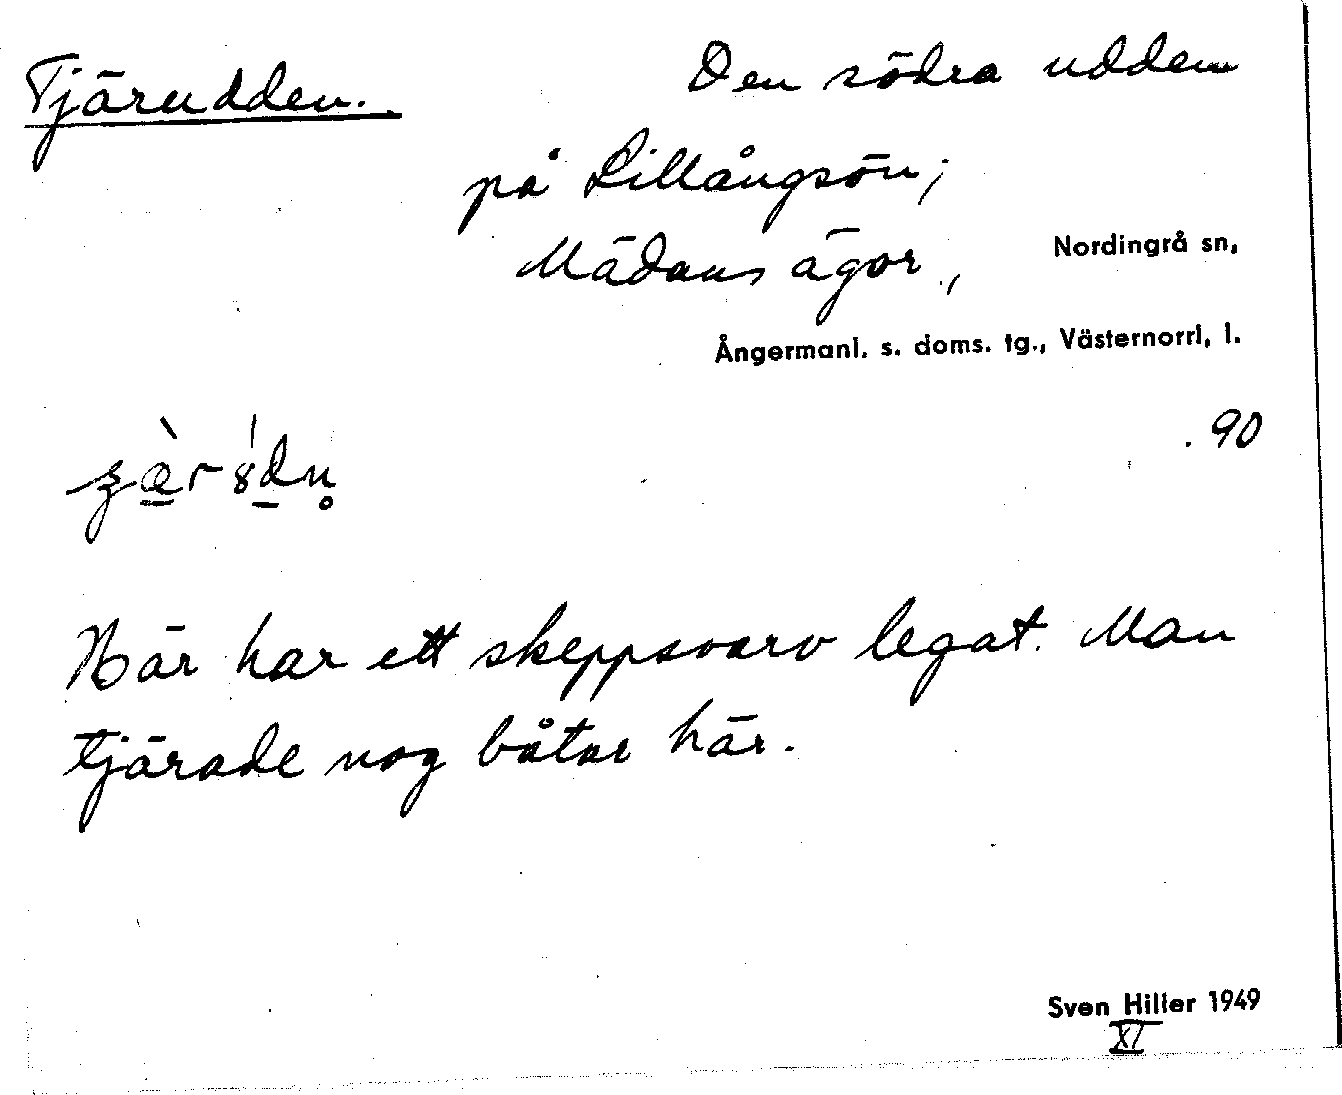 Tjärudden.
Den södra udden
på Lillångsön;
Mädans ägor,
Nordingrå sn,
Ångermanl. s. doms. tg., Västernorrl. l.
90
Här har ett skeppsvarv legat. Man
tjärade nog båtar här.
Sven Hiller 1949
XI